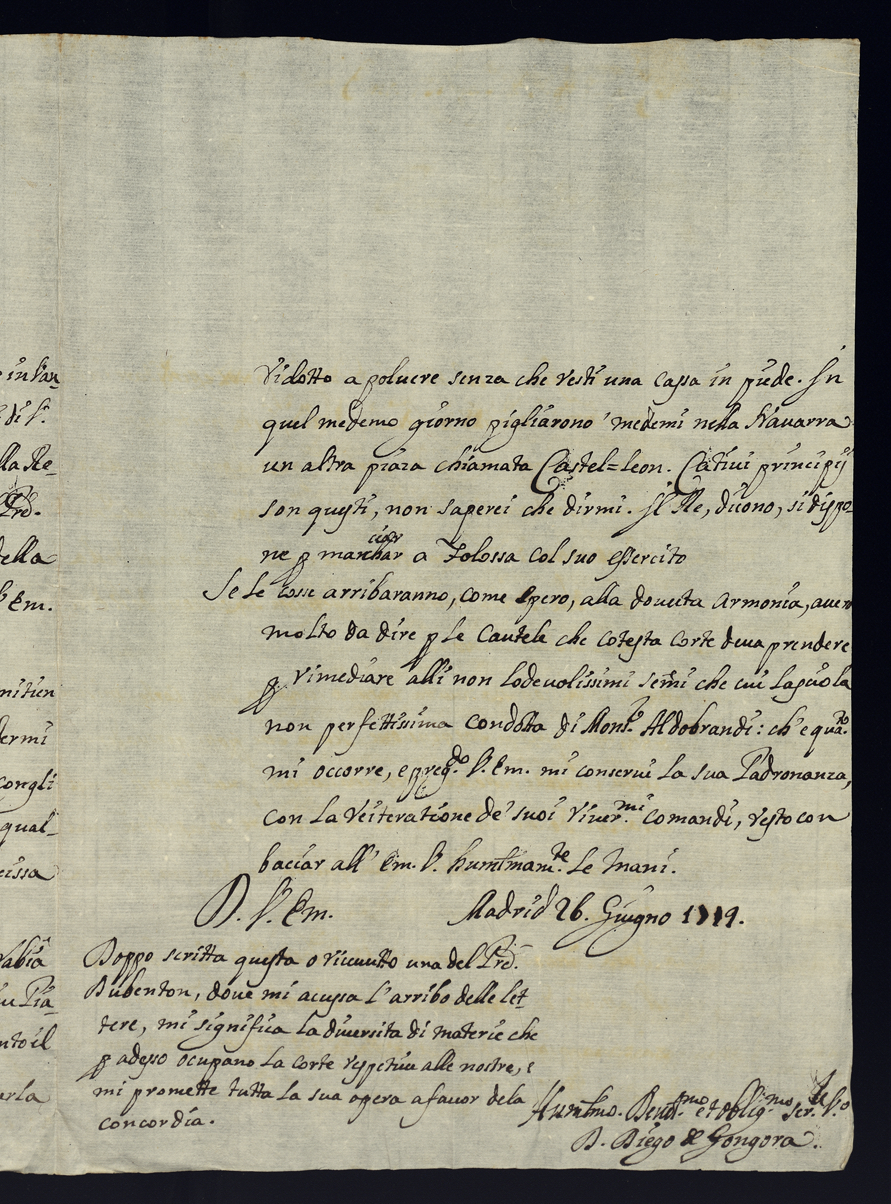 e in Van
di V.
lla Re-
Prd.
della
V. Em.
mitien
dermi
congli
qual-
cissa
rabia
Pia-
nto il
arla
ridotto a poluere senza che resti una cassa in piede. In
quel medemo giorno pigliarono i medemi nella Nauarra
un altra piaza chiamata Castel=leon. Catiui principij
son questi, non saperei che dirmi. Il Re, dicono, si dispo-
ne p marchar a Tolossa col suo essercito
ciar
Se le cosse arribaranno, come spero, alla douuta Armonia, auerò
molto da dire p le Cautele che cotesta Corte deua prendere
p rimediare alli non lodeuolissimi semi che cui lasciò la
non perfettissima condotta di Mons.r Aldobrandi: ch'e quã.to
mi occorre, e preg.do V. Em. mi conserui la sua Padronanza,
con la reiteratione de' suoi riuer.mi comandi, resto con
baciar all' Em. V. humilmam.te le mani.
D. V. Em. Madrid 26. Giugno 1719.
Doppo scritta questa o riceuuto una del Prd.
Dubenton, doue mi acussa l'arribo delle let-
tere, mi significa la diuersita di materie che
p adesso ocupano la corte respetiue alle nostre, e
mi promette tutta la sua opera a fauor dela
concordia.
Humilmo. Deuot.mo et oblig.mo ser.re V.o
D. Diego de Gongora.